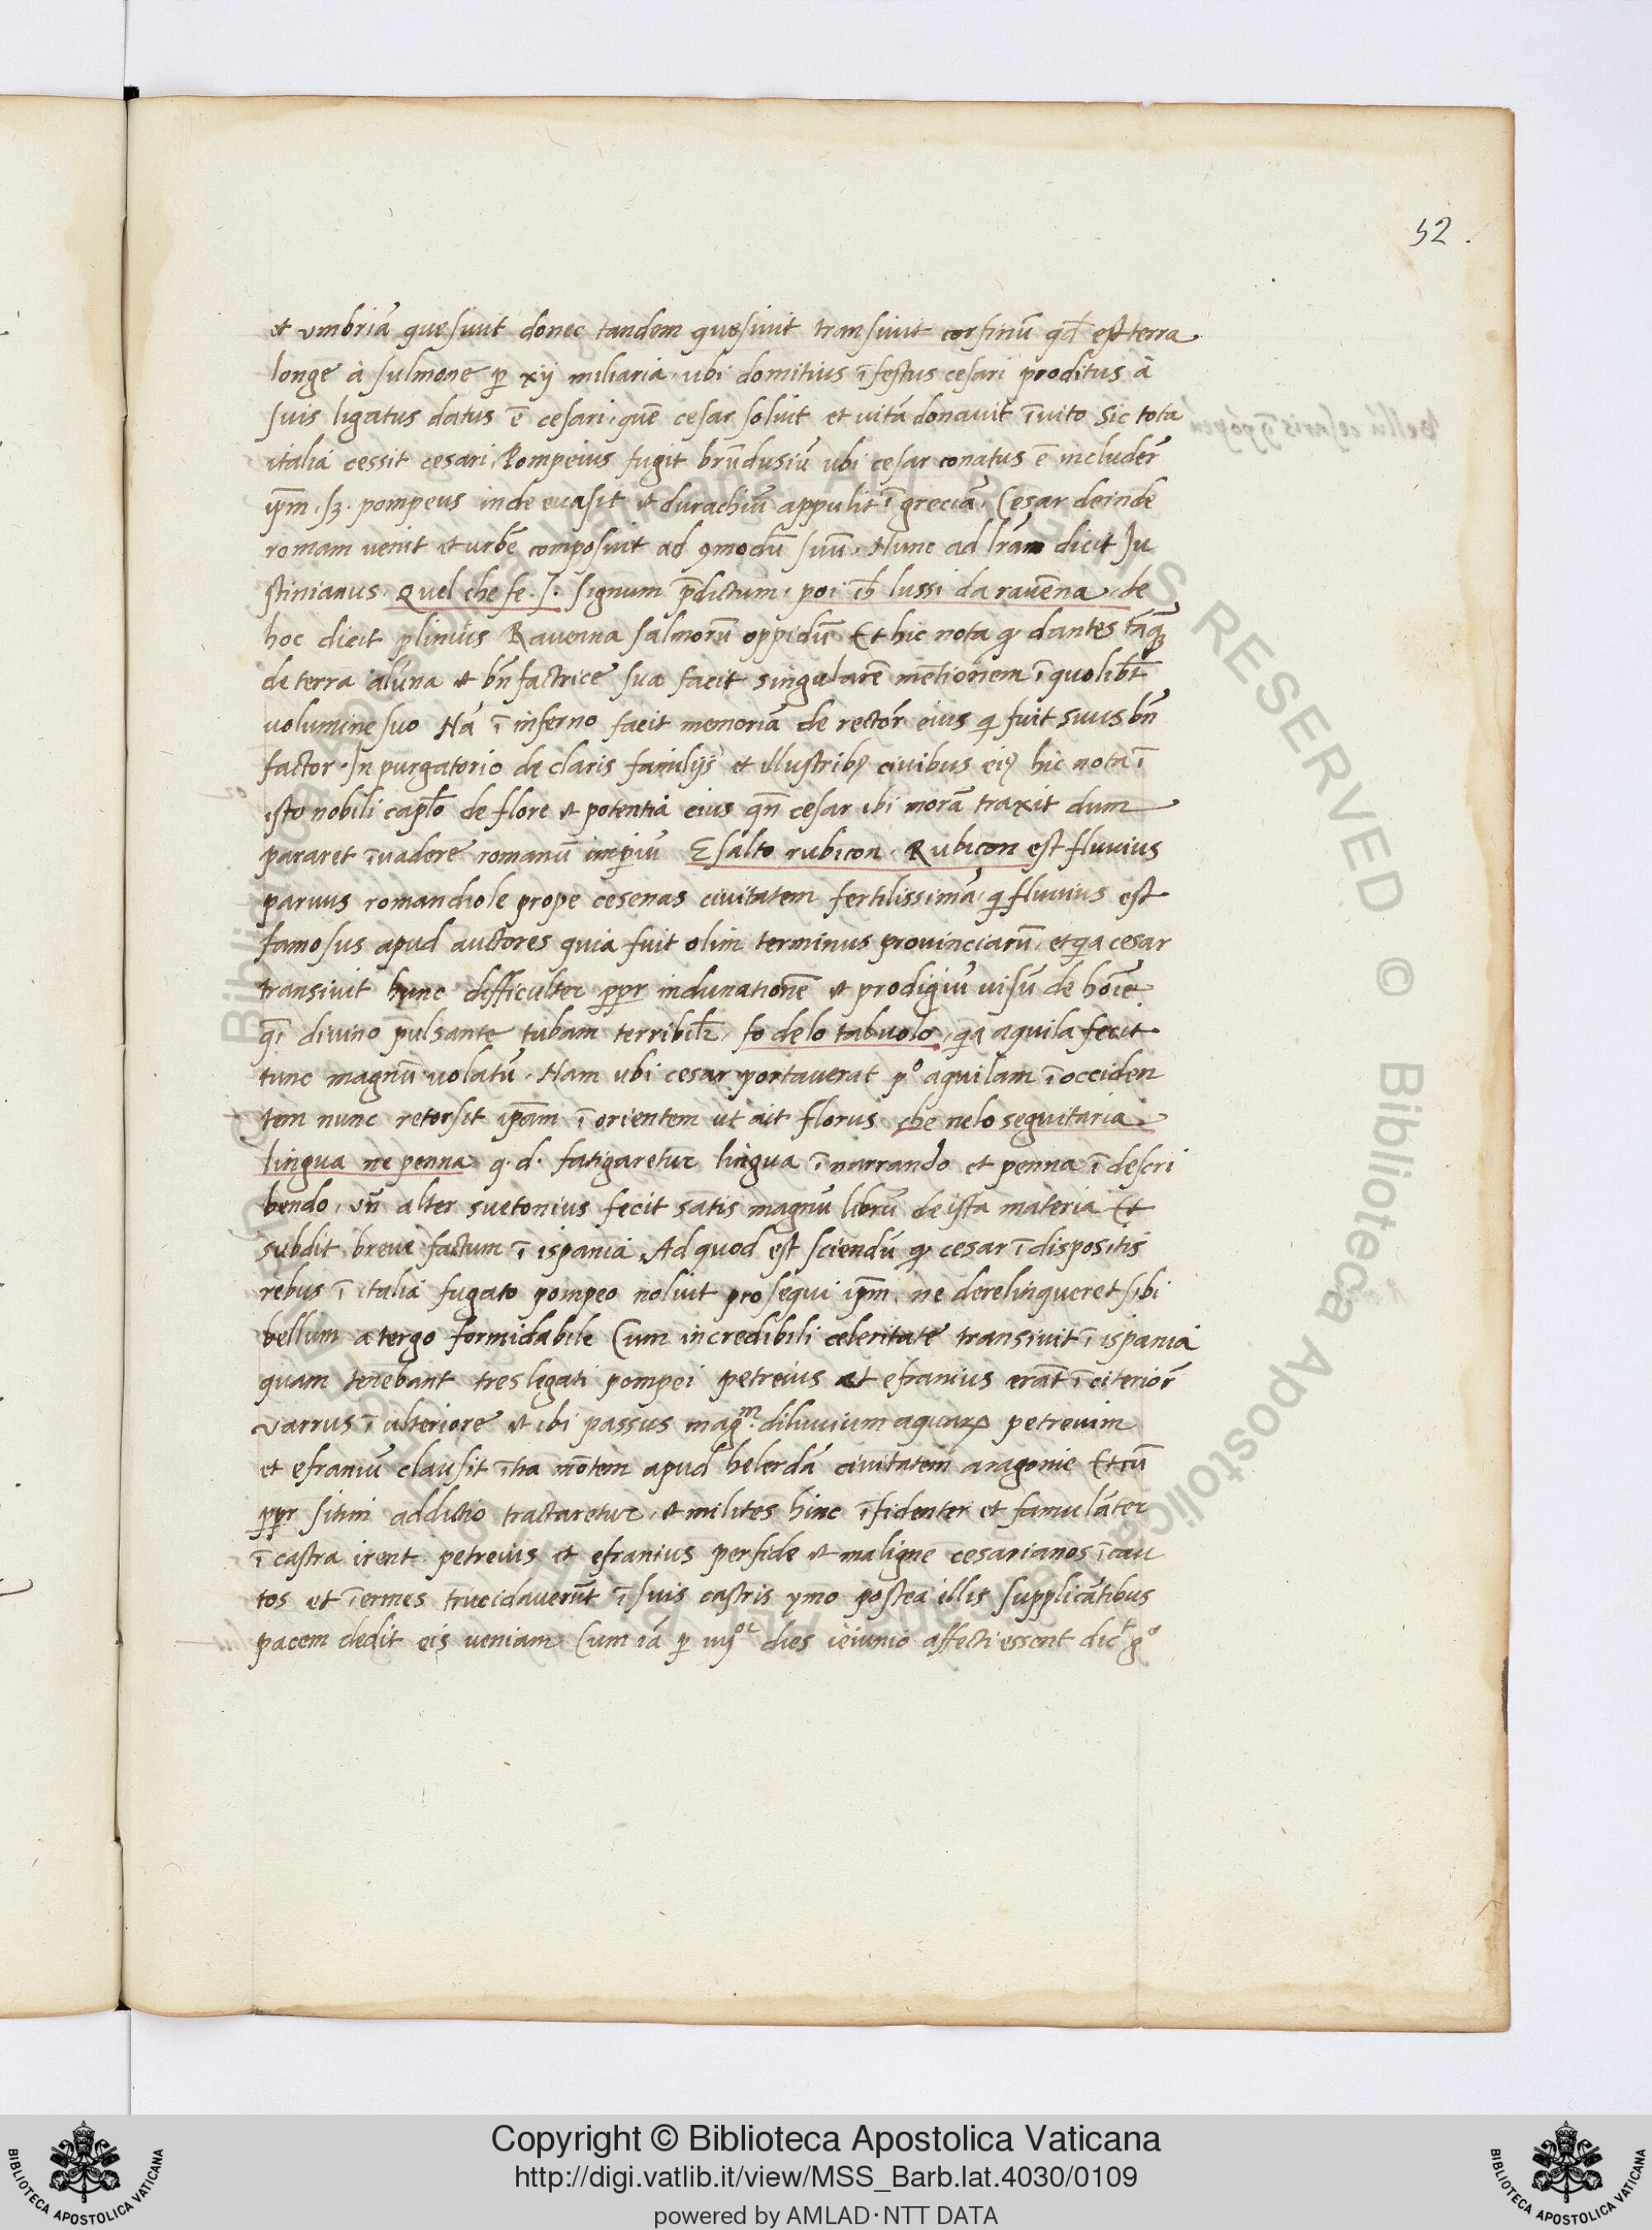 52.
et vmbriā quesiuit donec tandem quesiuit transiuit corfinū qd̄ est terra
longe à sulmone ꝑ xij miliaria · ubi domitius īfestus cesari proditus à
suis ligatus datus ē cesari, quē cesar soluit et vitā donauit īuito Sic tota
italia cessit cesari, Pompeius fugit brūdusiū ubi cesar conatus ē includer̄
ip̄m, sꝫ pompeus inde euasit et durachiū appulit ī greciā, Cesar deinde
romam uenit et urbē composuit ad ꝯmodū suū. Nunc ad lr̄am dicit Ju
stinianus. Quel che fe .s. signum p̄dictum, poi ch̄ lussi da rauēna, de
hoc dicit plinius Rauenna salmorū oppidū Et hic nota ꝙ dantes tāꝗꝫ
de terra alūna et bn̄factrice sua facit singularē mētionem ī quolibꝫ
volumine suo Nā ī inferno facit memoriā de rector̄ eius ꝗ fuit suus bn̄
factor. In purgatorio de claris familijs et illustribꝰ ciuibus eiꝰ hic nota ī
isto nobili cap̄lo de flore et potentia eius qn̄ cesar ibi morā traxit dum
pararet īuadere romanū imꝑiū E salto rubicon. Rubicon est fluuius
paruus romandiole prope cesenas ciuitatem fertilissimā, ꝗ fluuius est
famosus apud auctores quia fuit olim terminus prouinciarū, et ꝗa cesar
transiuit hunc difficulter ꝓpr indunationē et prodigiū uisū de hoīe
divino pulsante tubam terribilꝫ, fo de lo tabuolo, ꝗa aquila fecit
tunc magnū volatū. Nam ubi cesar portauerat pº aquilam ī occiden
tem nunc retorsit ip̄am ī orientem ut ait florus che nelo seguitaria
lingua ne penna q.d. fatigaretur lingua ī narrando et penna ī descri
bendo, vn̄ alter suetonius fecit satis magnū librū de ista materia Et
subdit breue factum ī ispania Ad quod est sciendū ꝙ cesar ī dispositis
rebus ī italia fugato pompeo noluit prosequi ip̄m, ne derelinqueret sibi
bellum a tergo formidabile Cum incredibili celeritate transiuit ī ispania
quam tenebant tres legati pompei petreius et efranius erāt ī citerior̄
Varrus ī ulteriore et ibi passus magᵐ. diluuium aquaꝝ petreuim
et efraniū clausit īt̄a mōtem apud helerdā ciuitatem aragonie Et cū
ꝓpr sitim additio tractaretur, et milites hinc īfidenter et famulāter
ī castra irent petreius et efranius perfide et maligne cesarianos īcau
tos et īermes trucidauerūt ī suis castris ymo postea illis supplicātibus
pacem dedit eis ueniam Cum iā ꝑ iiijᵒʳ dies ieiunio affecti essent dicᵗ gº
Copyright © Biblioteca Apostolica Vaticana
http://digi.vatlib.it/view/MSS_Barb.lat.4030/0109
powered by AMLAD·NTT DATA
BIBLIOTECA APOSTOLICA VATICANA
BIBLIOTECA APOSTOLICA VATICANA